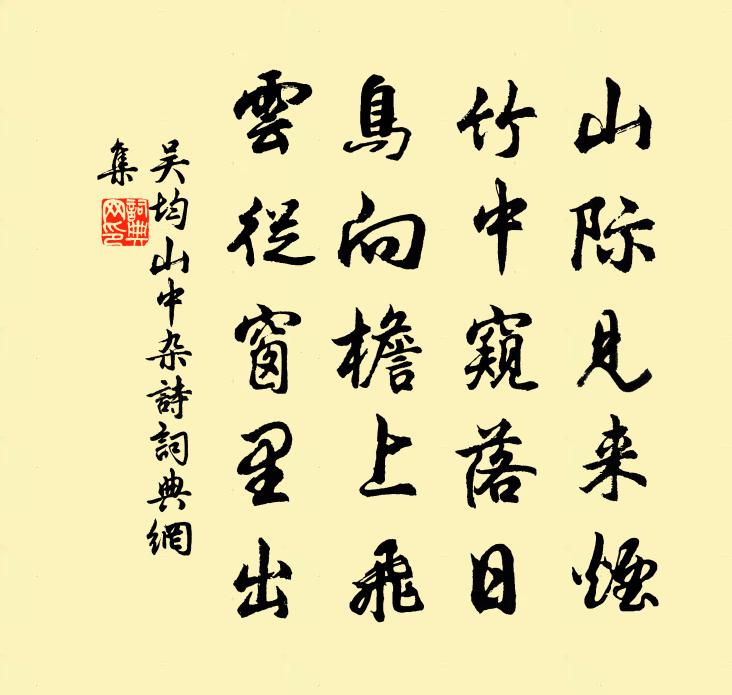 山际見来煙
竹中窺落日
鳥向檐上飛
雲從窗里出
吴均山中杂詩詞典網
集
詞典網印